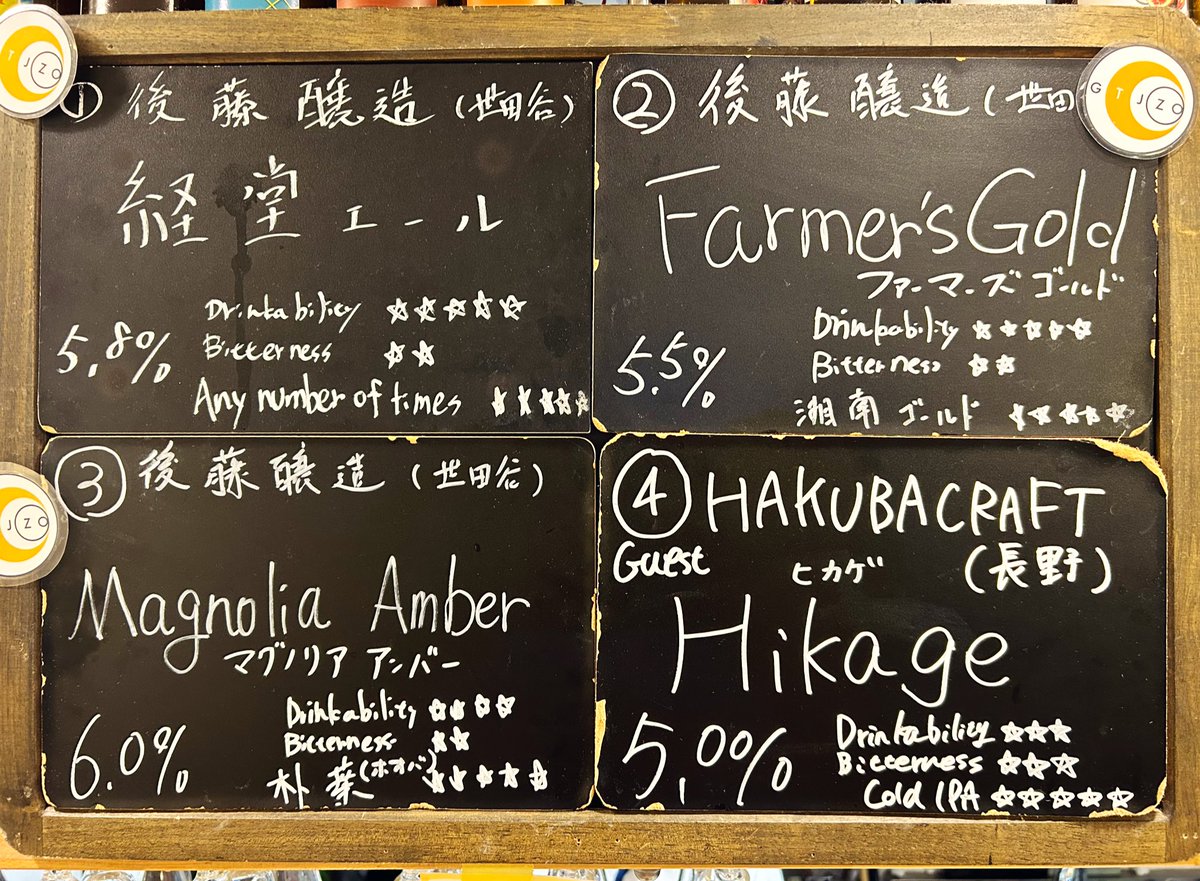 ① 後藤醸造 (世田谷)
経堂エール
5.8%
Drinkability ☆☆☆☆☆
Bitterness ☆☆
Any number of times ☆☆☆☆☆
② 後藤醸造 (世田
Farmer's Gold
ファーマーズゴールド
5.5%
Drinkability ☆☆☆☆☆
Bitterness ☆☆
湘南ゴールド ☆☆☆☆☆
③ 後藤醸造 (世田谷)
Magnolia Amber
マグノリア アンバー
6.0%
Drinkability ☆☆☆☆
Bitterness ☆☆
朴葉(ホオバ) ☆☆☆☆☆
④ HAKUBA CRAFT
Guest
(長野)
ヒカゲ
Hikage
5.0%
Drinkability ☆☆☆
Bitterness ☆☆☆
Cold IPA ☆☆☆☆☆
TJZO
GTJZO
JZO